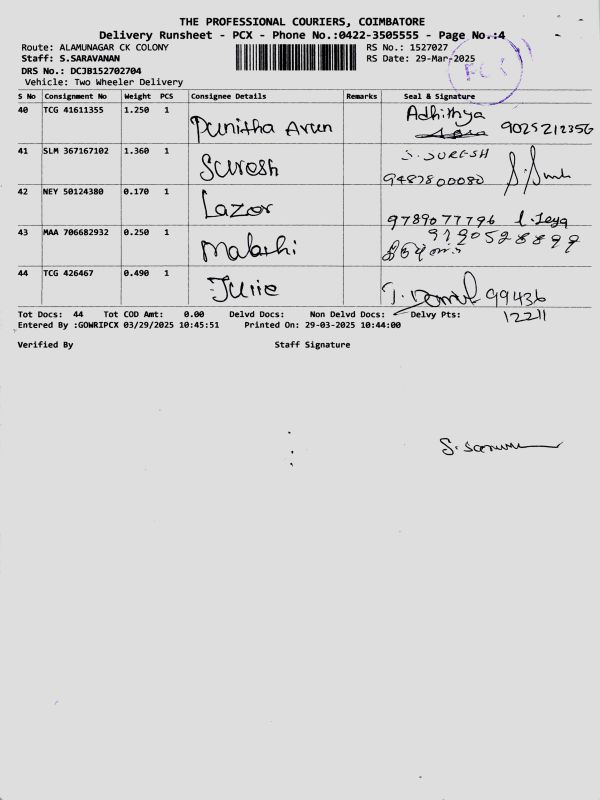 THE PROFESSIONAL COURIERS, COIMBATORE
Delivery Runsheet - PCX - Phone No.:0422-3505555 - Page No.:4
Route: ALAMUNAGAR CK COLONY
Staff: S.SARAVANAN
DRS No.: DCJB152702704
Vehicle: Two Wheeler Delivery
RS No.: 1527027
RS Date: 29-Mar-2025
PCX
S No Consignment No Weight PCS Consignee Details Remarks Seal & Signature
40 TCG 41611355 1.250 1 Punitha Arun Adhithya 9025212356
41 SLM 367167102 1.360 1 Suresh S. SURESH
9487800080
42 NEY 50124380 0.170 1 Lazor 9789077796 l. Jeya
43 MAA 706682932 0.250 1 Malathi 9790528899
44 TCG 426467 0.490 1 Julie 99436
12211
Tot Docs: 44 Tot COD Amt: 0.00 Delvd Docs: Non Delvd Docs: Delvy Pts:
Entered By :GOWRIPCX 03/29/2025 10:45:51 Printed On: 29-03-2025 10:44:00
Verified By Staff Signature